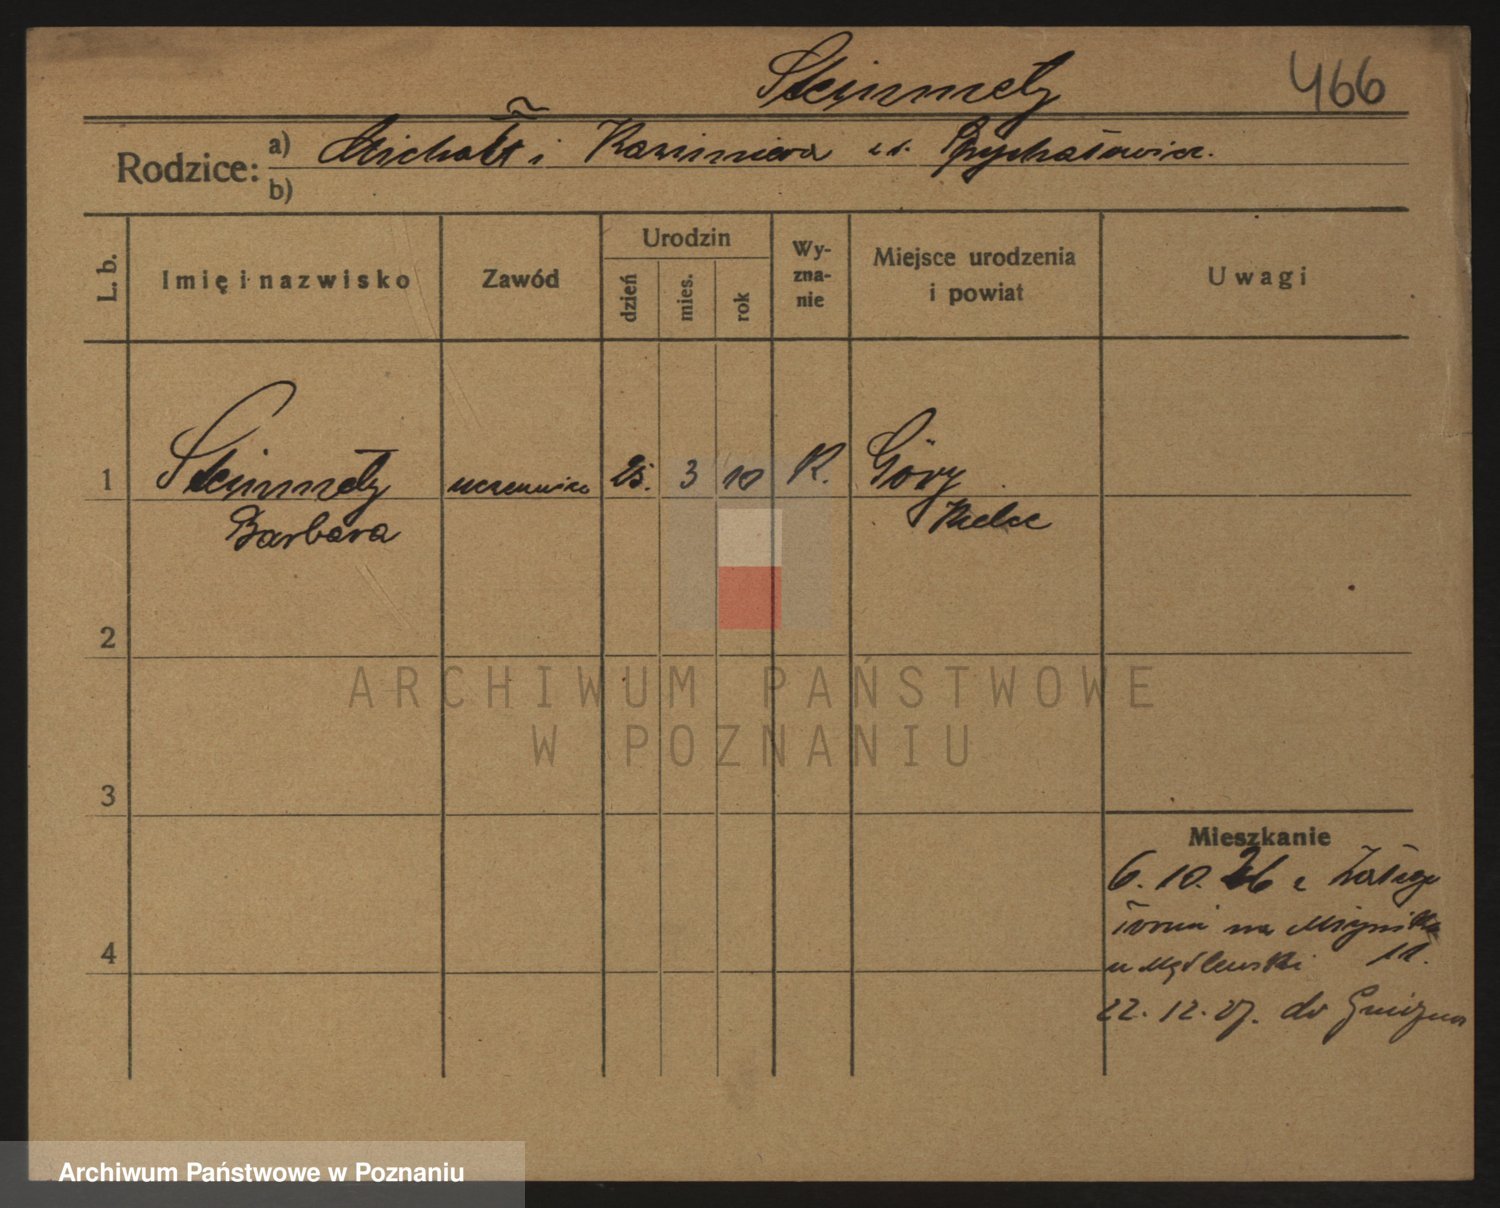 Steinmetz 466
Rodzice: a) Michał i Kazimiera z d. Spychałowicz.
b)
L. b. Imię i nazwisko Zawód Urodzin dzień mies. rok Wyzna-nie Miejsce urodzenia i powiat Uwagi
1 Steinmetz uczennica 25. 3 10 K. Góry
Barbara Kielce
2
ARCHIWUM PAŃSTWOWE
W POZNANIU
3
Mieszkanie
6. 10. 26 z
na Młyńska
4 11.
22. 12. 27. do Gniezna
Archiwum Państwowe w Poznaniu